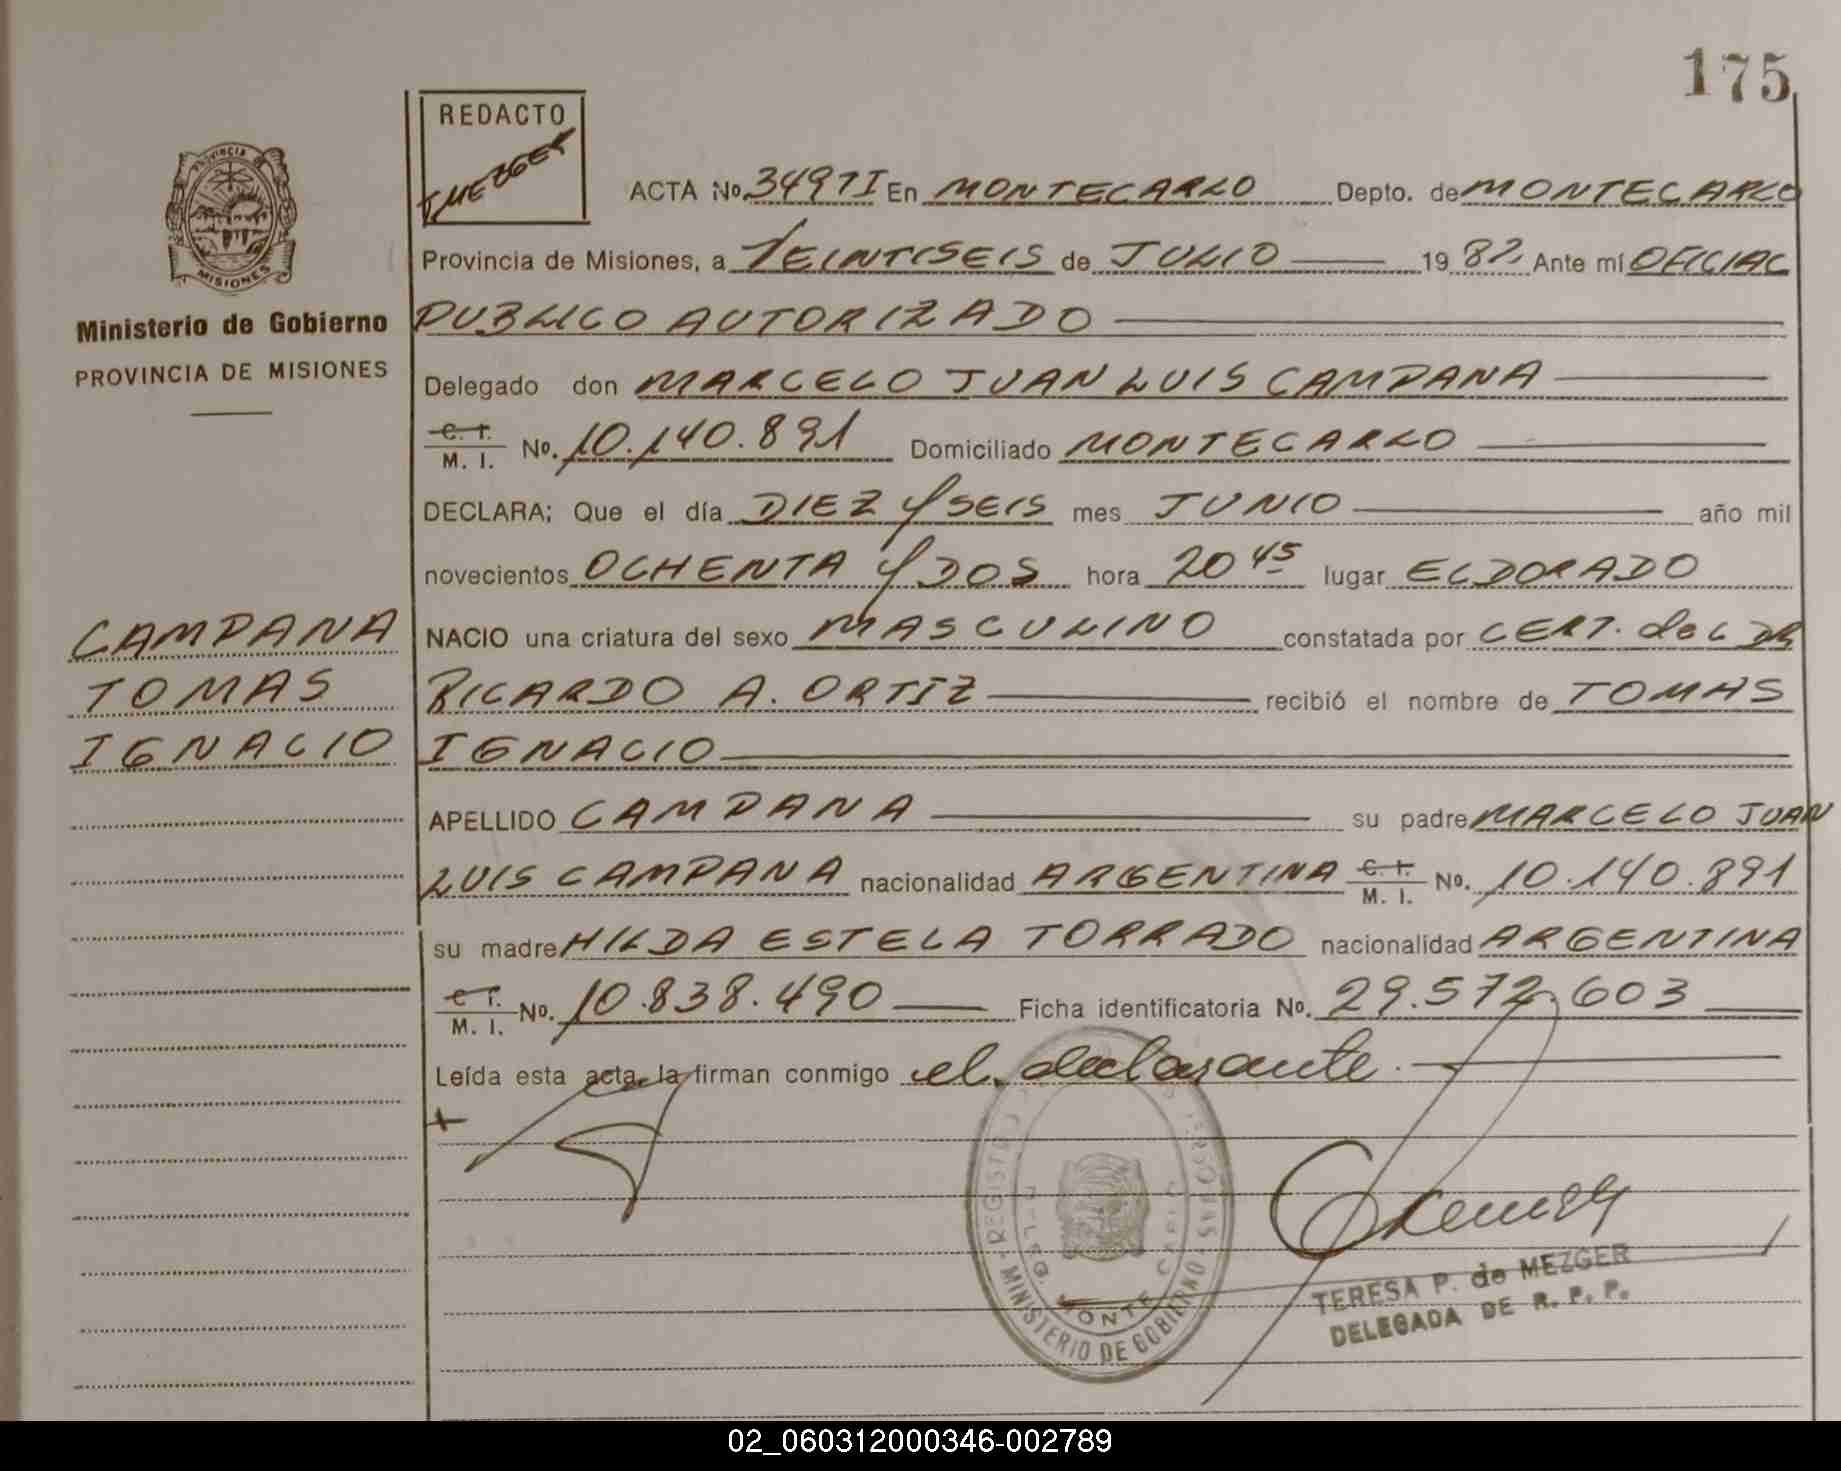 175
REDACTO
T MEZGER
PROVINCIA DE
MISIONES
Ministerio de Gobierno
PROVINCIA DE MISIONES
ACTA No. 3497I En MONTECARLO Depto. de MONTECARLO
Provincia de Misiones, a VEINTISEIS de JULIO 19 82 Ante mí OFICIAL
PUBLICO AUTORIZADO
Delegado don MARCELO JUAN LUIS CAMPANA
C. I. / M. I. No. 10.140.891 Domiciliado MONTECARLO
DECLARA; Que el día DIEZ Y SEIS mes JUNIO año mil
novecientos OCHENTA Y DOS hora 20 45 lugar ELDORADO
CAMPANA
TOMAS
IGNACIO
NACIO una criatura del sexo MASCULINO constatada por CERT. del DR
RICARDO A. ORTIZ recibió el nombre de TOMAS
IGNACIO
APELLIDO CAMPANA su padre MARCELO JUAN
LUIS CAMPANA nacionalidad ARGENTINA C. I. / M. I. No. 10.140.891
su madre HILDA ESTELA TORRADO nacionalidad ARGENTINA
C. I. / M. I. No. 10.838.490 Ficha identificatoria No. 29.572.603
Leída esta acta, la firman conmigo el declarante.
MINISTERIO DE GOBIERNO
REGISTRO
DELEG. MONTE CARLO
TERESA P. de MEZGER
DELEGADA DE R. P. P.
02_060312000346-002789